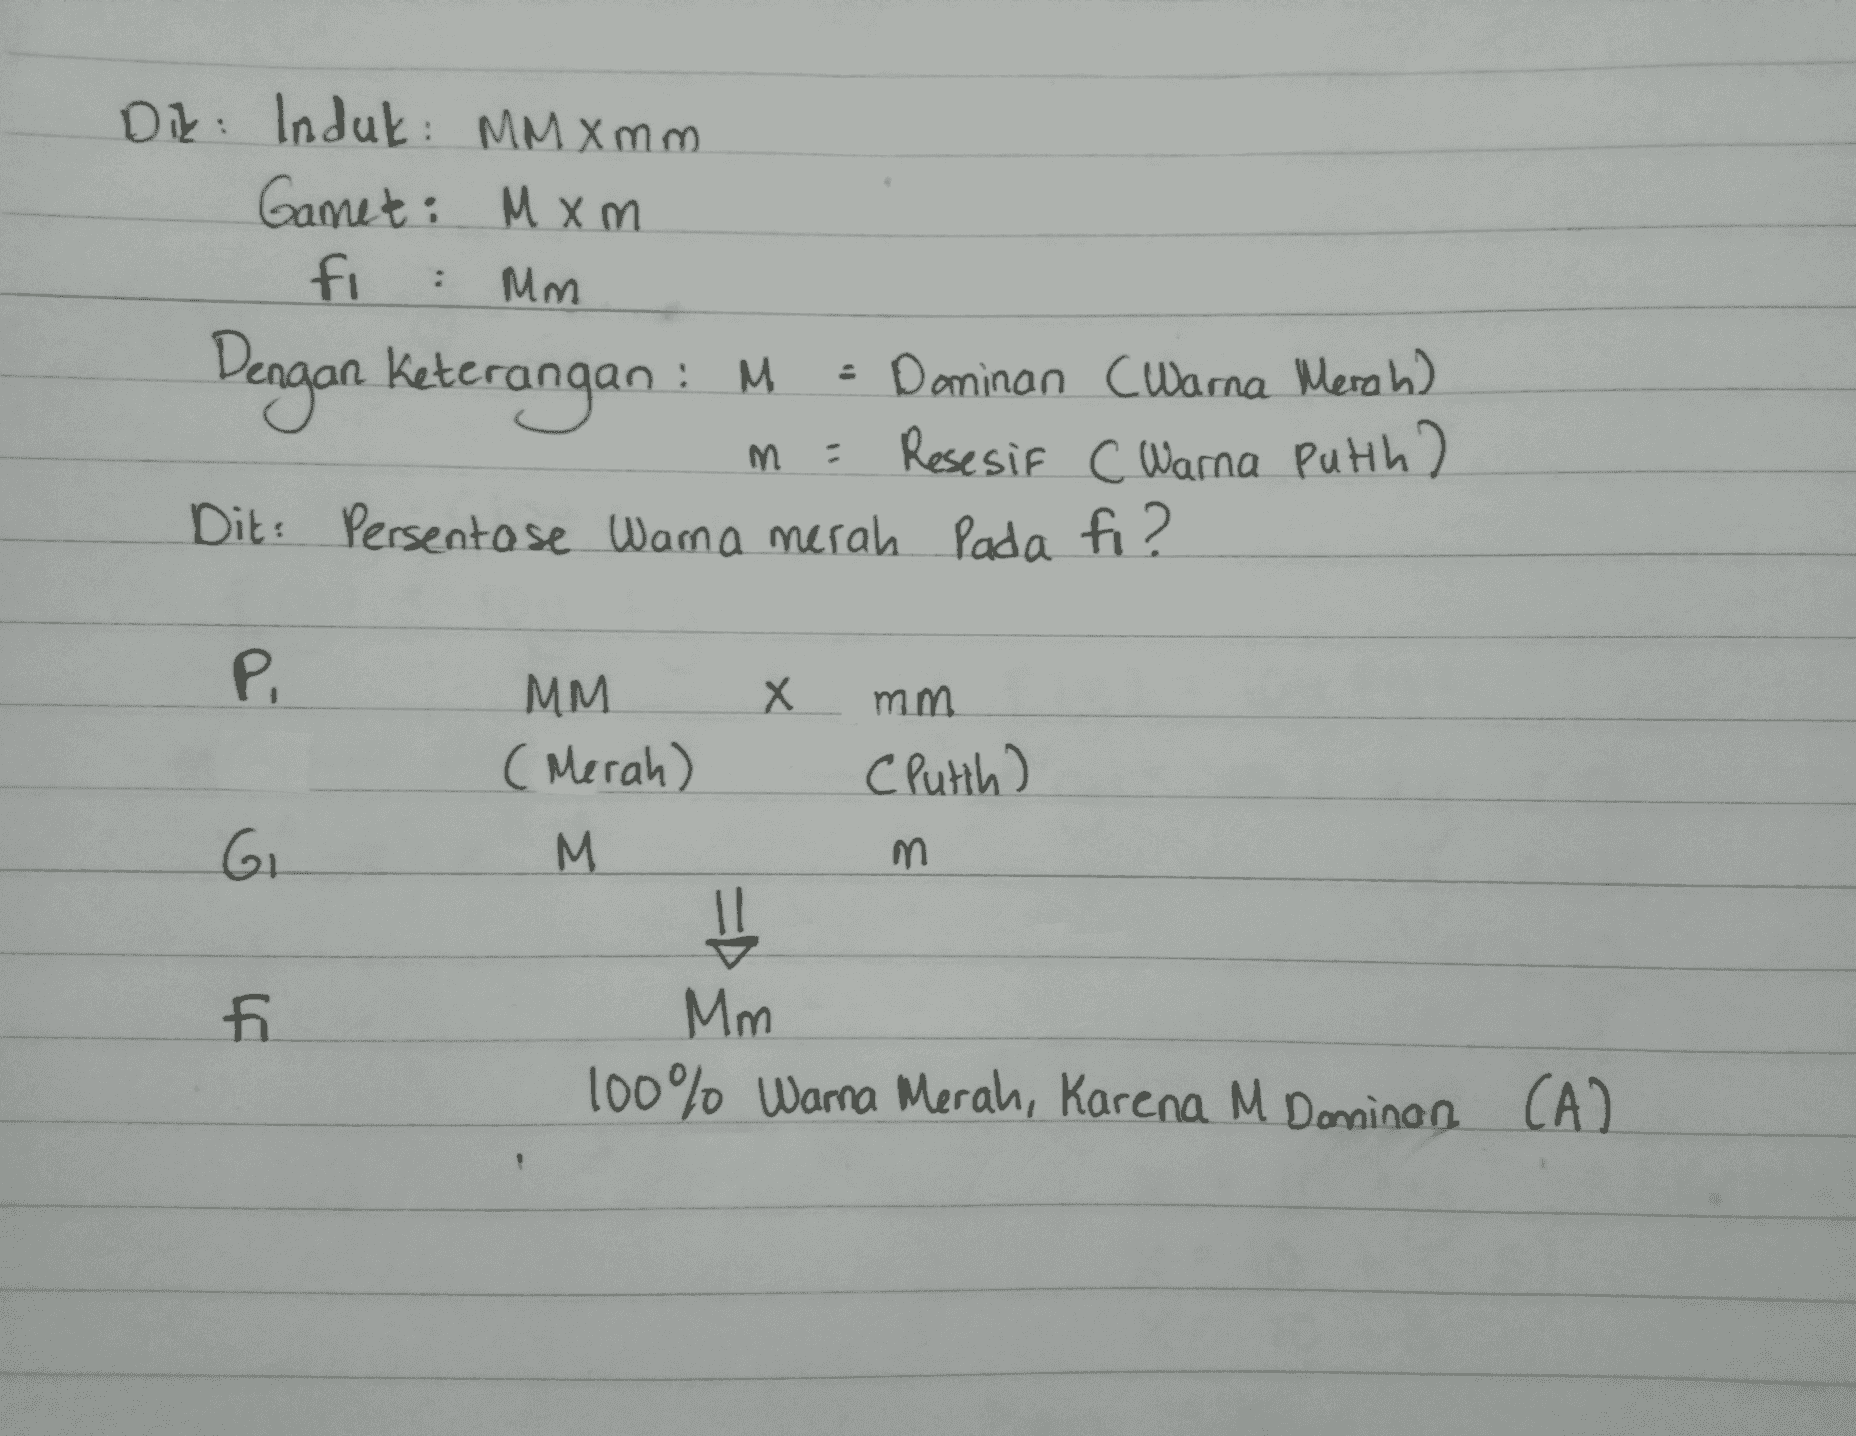 Dik: Induk: MM X mm
Gamet: M X m
F1 : Mm
Dengan Keterangan: M = Dominan (Warna Merah)
m = Resesif (Warna Putih)
Dit: Persentase Warna merah Pada F1?
P1 MM X mm
(Merah) (Putih)
G1 M m
F1 Mm
100% Warna Merah, Karena M Dominan (A)